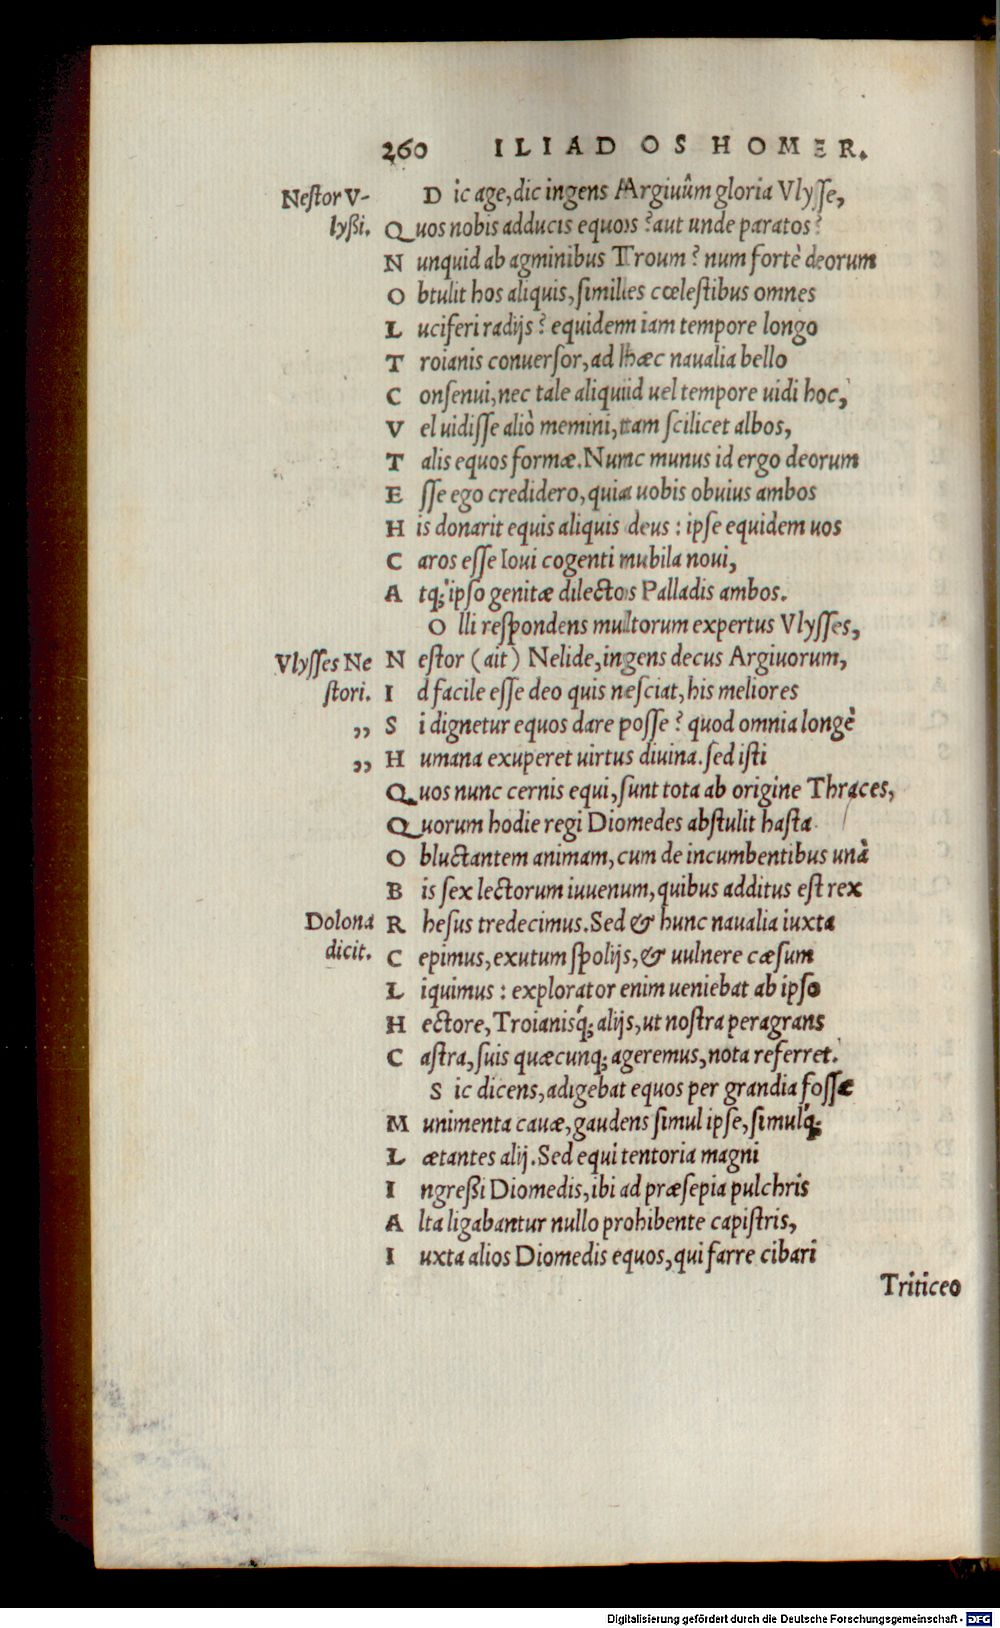 260 ILIADOS HOMER.
Nestor V-
lyßi.
Dic age, dic ingens Argiuûm gloria Vlysse,
Quos nobis adducis equos? aut unde paratos?
Nunquid ab agminibus Troum? num fortè deorum
Obtulit hos aliquis, similes cœlestibus omnes
Luciferi radijs? equidem iam tempore longo
Troianis conuersor, ad hæc naualia bello
Consenui, nec tale aliquid uel tempore uidi hoc,
Vel uidisse aliò memini, tam scilicet albos,
Talis equos formæ. Nunc munus id ergo deorum
Esse ego credidero, quia uobis obuius ambos
His donarit equis aliquis deus: ipse equidem uos
Caros esse Ioui cogenti nubila noui,
Atq; ipso genitæ dilectos Palladis ambos.
Olli respondens multorum expertus Vlysses,
Vlysses Ne
stori.
Nestor (ait) Nelide, ingens decus Argiuorum,
Id facile esse deo quis nesciat, his meliores
„ Si dignetur equos dare posse? quod omnia longè
„ Humana exuperet uirtus diuina. sed isti
Quos nunc cernis equi, sunt tota ab origine Thraces,
Quorum hodie regi Diomedes abstulit hasta
Obluctantem animam, cum de incumbentibus unà
Bis sex lectorum iuuenum, quibus additus est rex
Dolona
dicit.
Rhesus tredecimus. Sed & hunc naualia iuxta
Cepimus, exutum spolijs, & uulnere cæsum
Liquimus: explorator enim ueniebat ab ipso
Hectore, Troianisq́; alijs, ut nostra peragrans
Castra, suis quæcunq; ageremus, nota referret.
Sic dicens, adigebat equos per grandia fossæ
Munimenta cauæ, gaudens simul ipse, simulq́;
Lætantes alij. Sed equi tentoria magni
Ingreßi Diomedis, ibi ad præsepia pulchris
Alta ligabantur nullo prohibente capistris,
Iuxta alios Diomedis equos, qui farre cibari
Triticeo
Digitalisierung gefördert durch die Deutsche Forschungsgemeinschaft - DFG